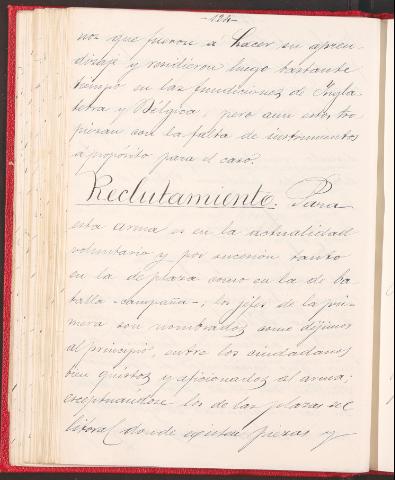 -124-
nos que fueron a hacer su apren-
dizaje y residieron luego bastante
tiempo en las fundiciones de Ingla-
terra y Bélgica, pero aun estos tro-
piezan con la falta de instrumentos
apropósito para el caso.
Reclutamiento: Para
esta arma es en la actualidad
voluntario y por sucesión tanto
en la de plaza como en la de ba-
talla -campaña-; los jefes de la pri-
mera son nombrados como dijimos
al principio, entre los ciudadanos
bien quistos y aficionados al arma;
exceptuandose los de las plazas del
litoral donde existen piezas y